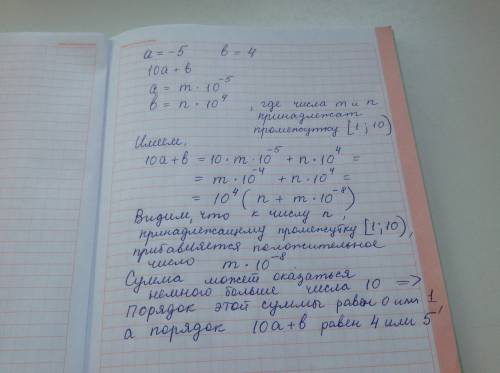 a = -5 в = 4
10a + в
a = m · 10⁻⁵
в = n · 10⁴ , где числа m и n
принадлежат
промежутку [1; 10)
Имеем,
10a + в = 10 · m · 10⁻⁵ + n · 10⁴ =
= m · 10⁻⁴ + n · 10⁴ =
= 10⁴ (n + m · 10⁻⁸)
Видим, что к числу n,
принадлежащему промежутку [1; 10),
прибавляется положительное
число m · 10⁻⁸.
Сумма может оказаться
немного больше числа 10 =>
Порядок этой суммы равен 0 или 1,
а порядок 10a + в равен 4 или 5